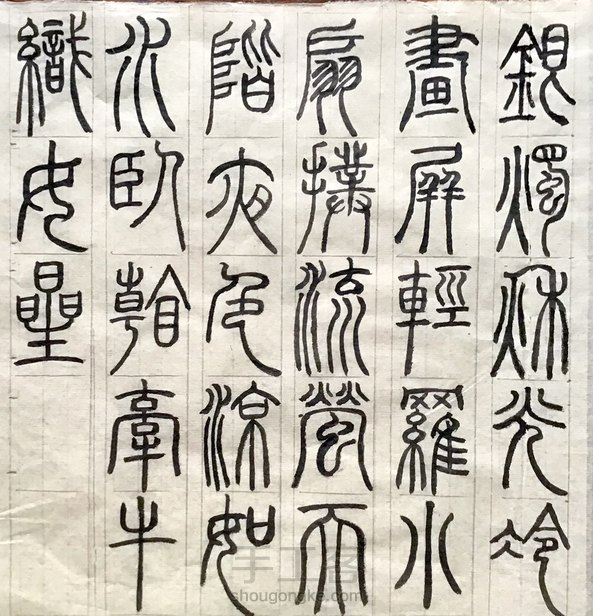 銀燭秋光冷
畫屏輕羅小
扇撲流螢天
階夜色涼如
水臥看牽牛
織女星
手工客
shougongke.com